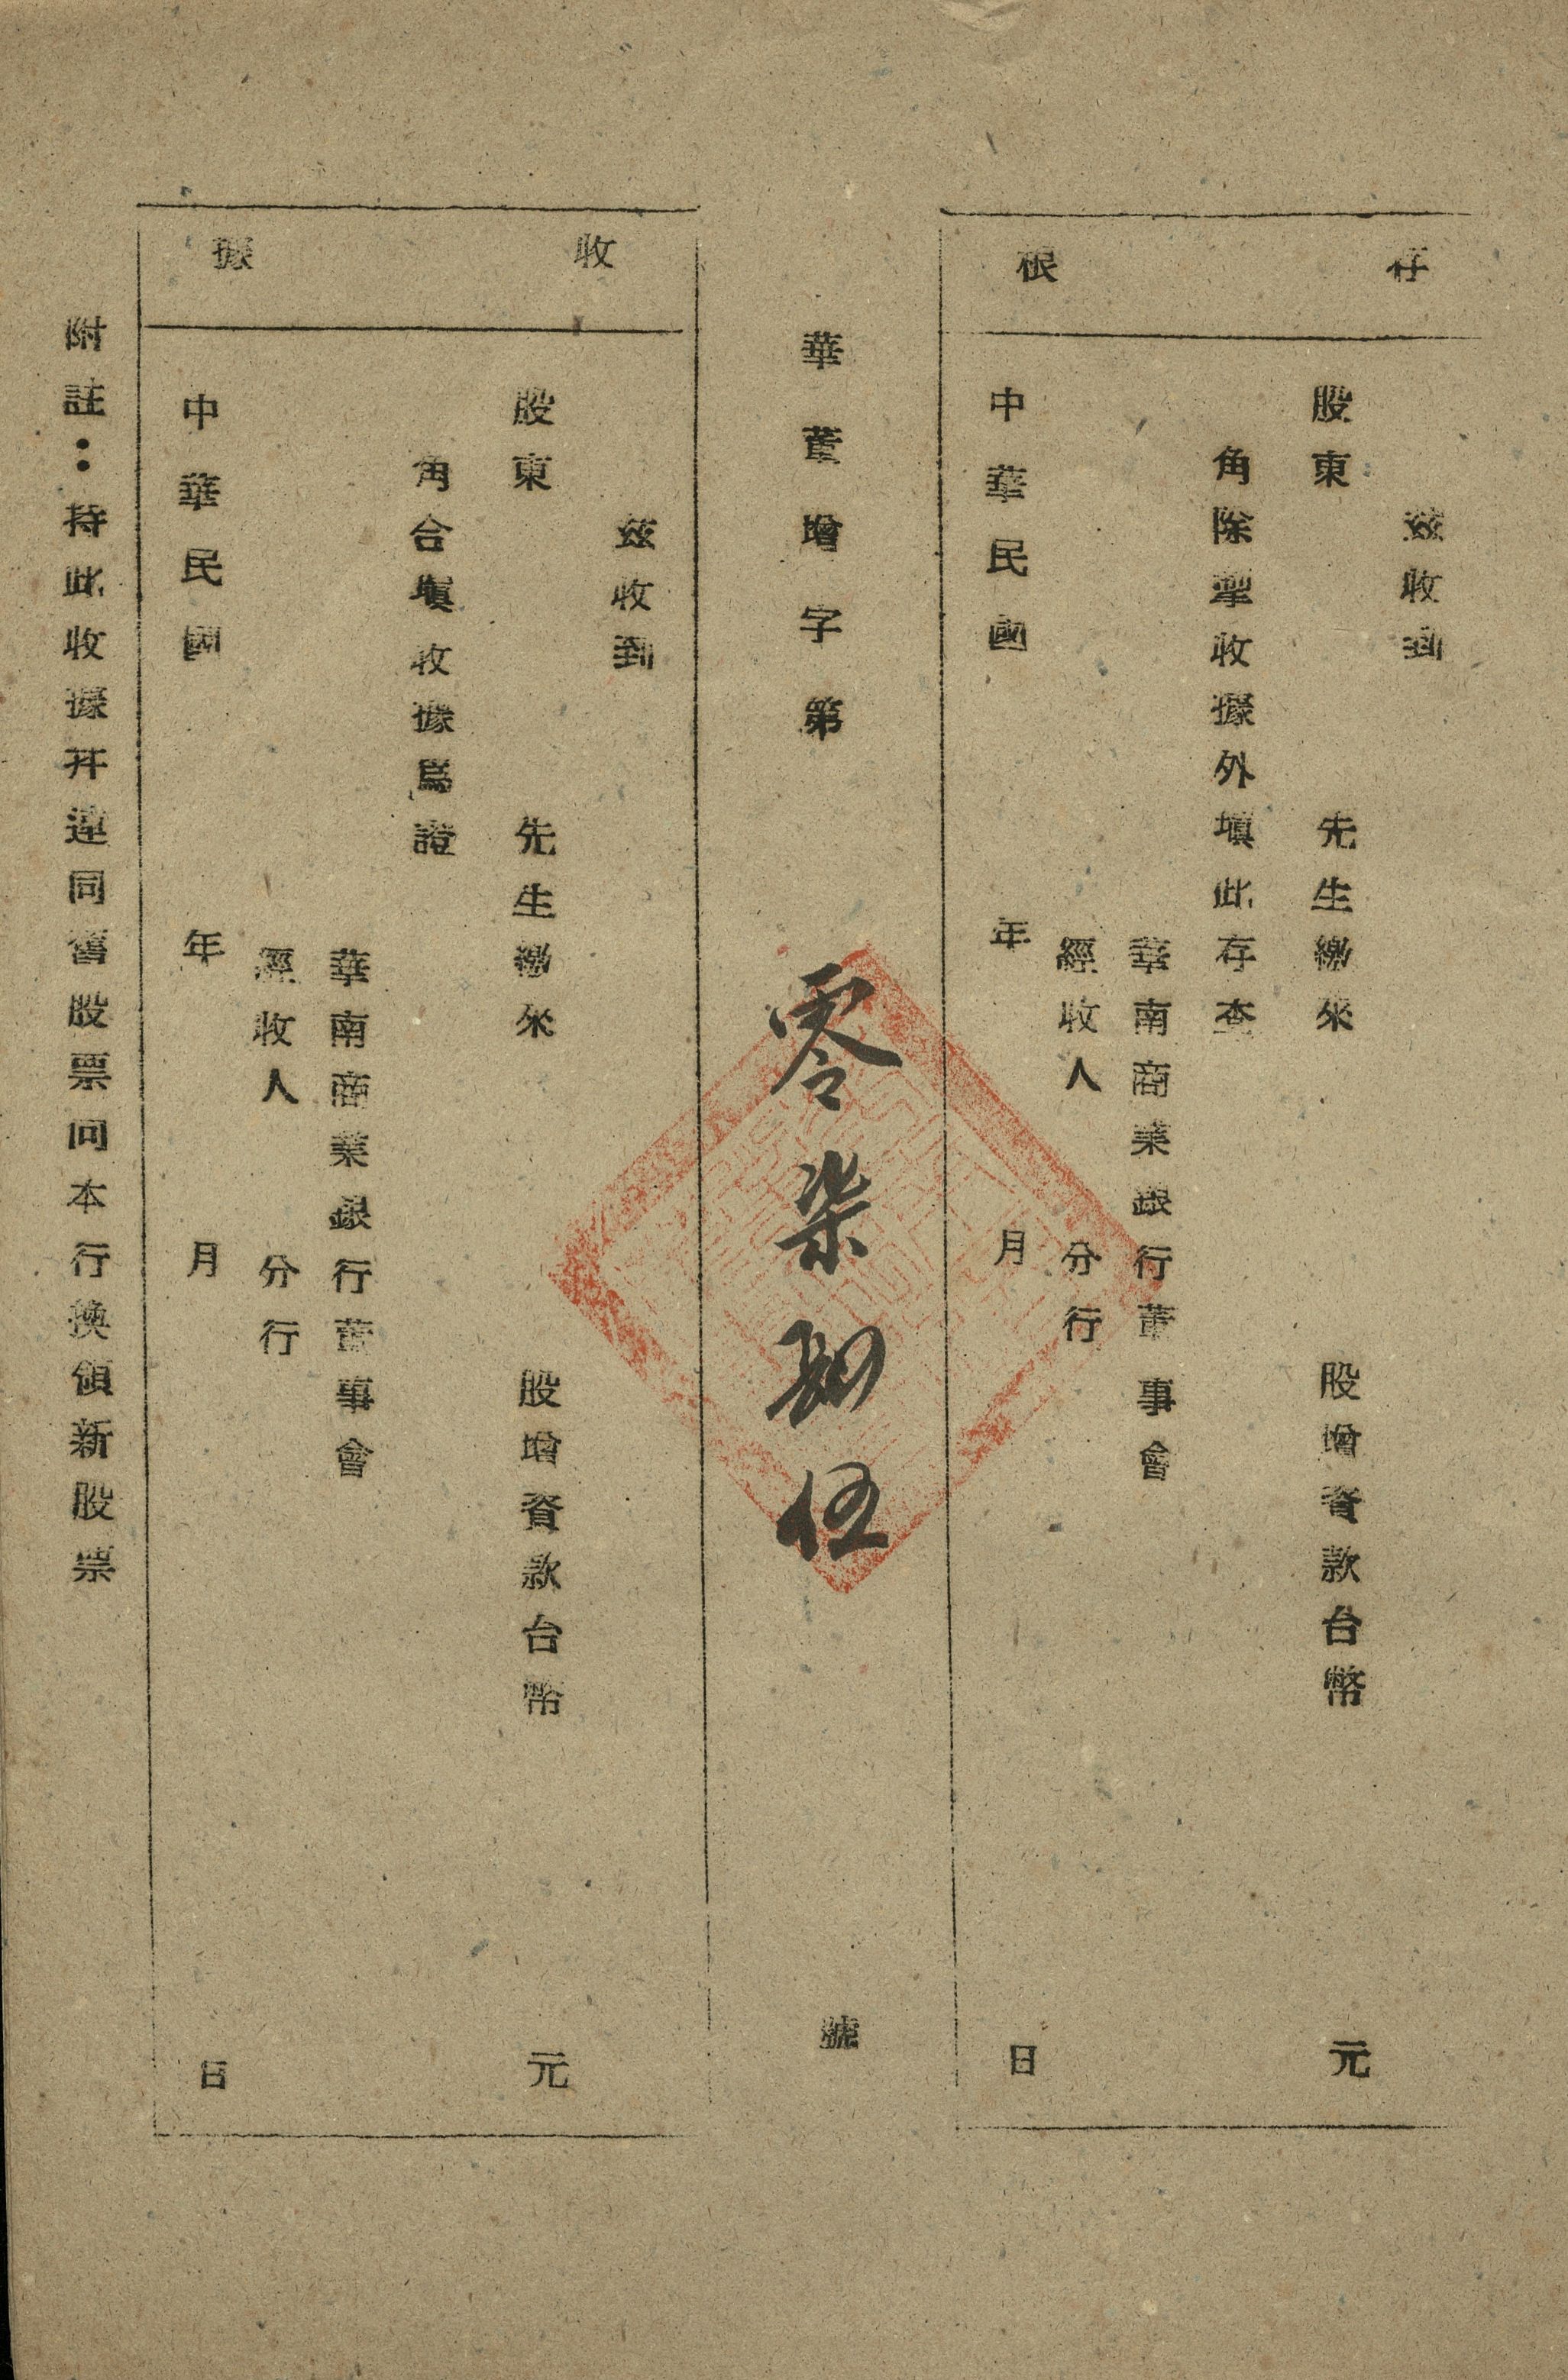 存根
茲收到
股東 先生繳來 股增資款台幣 元
角除掣收據外填此存查
華南商業銀行董事會
經收人 分行
中華民國 年 月 日
華董增字第 零柒捌伍 號
收據
茲收到
股東 先生繳來 股增資款台幣 元
角合塡收據爲證
華南商業銀行董事會
經收人 分行
中華民國 年 月 日
附註：持此收據幷連同舊股票向本行換領新股票